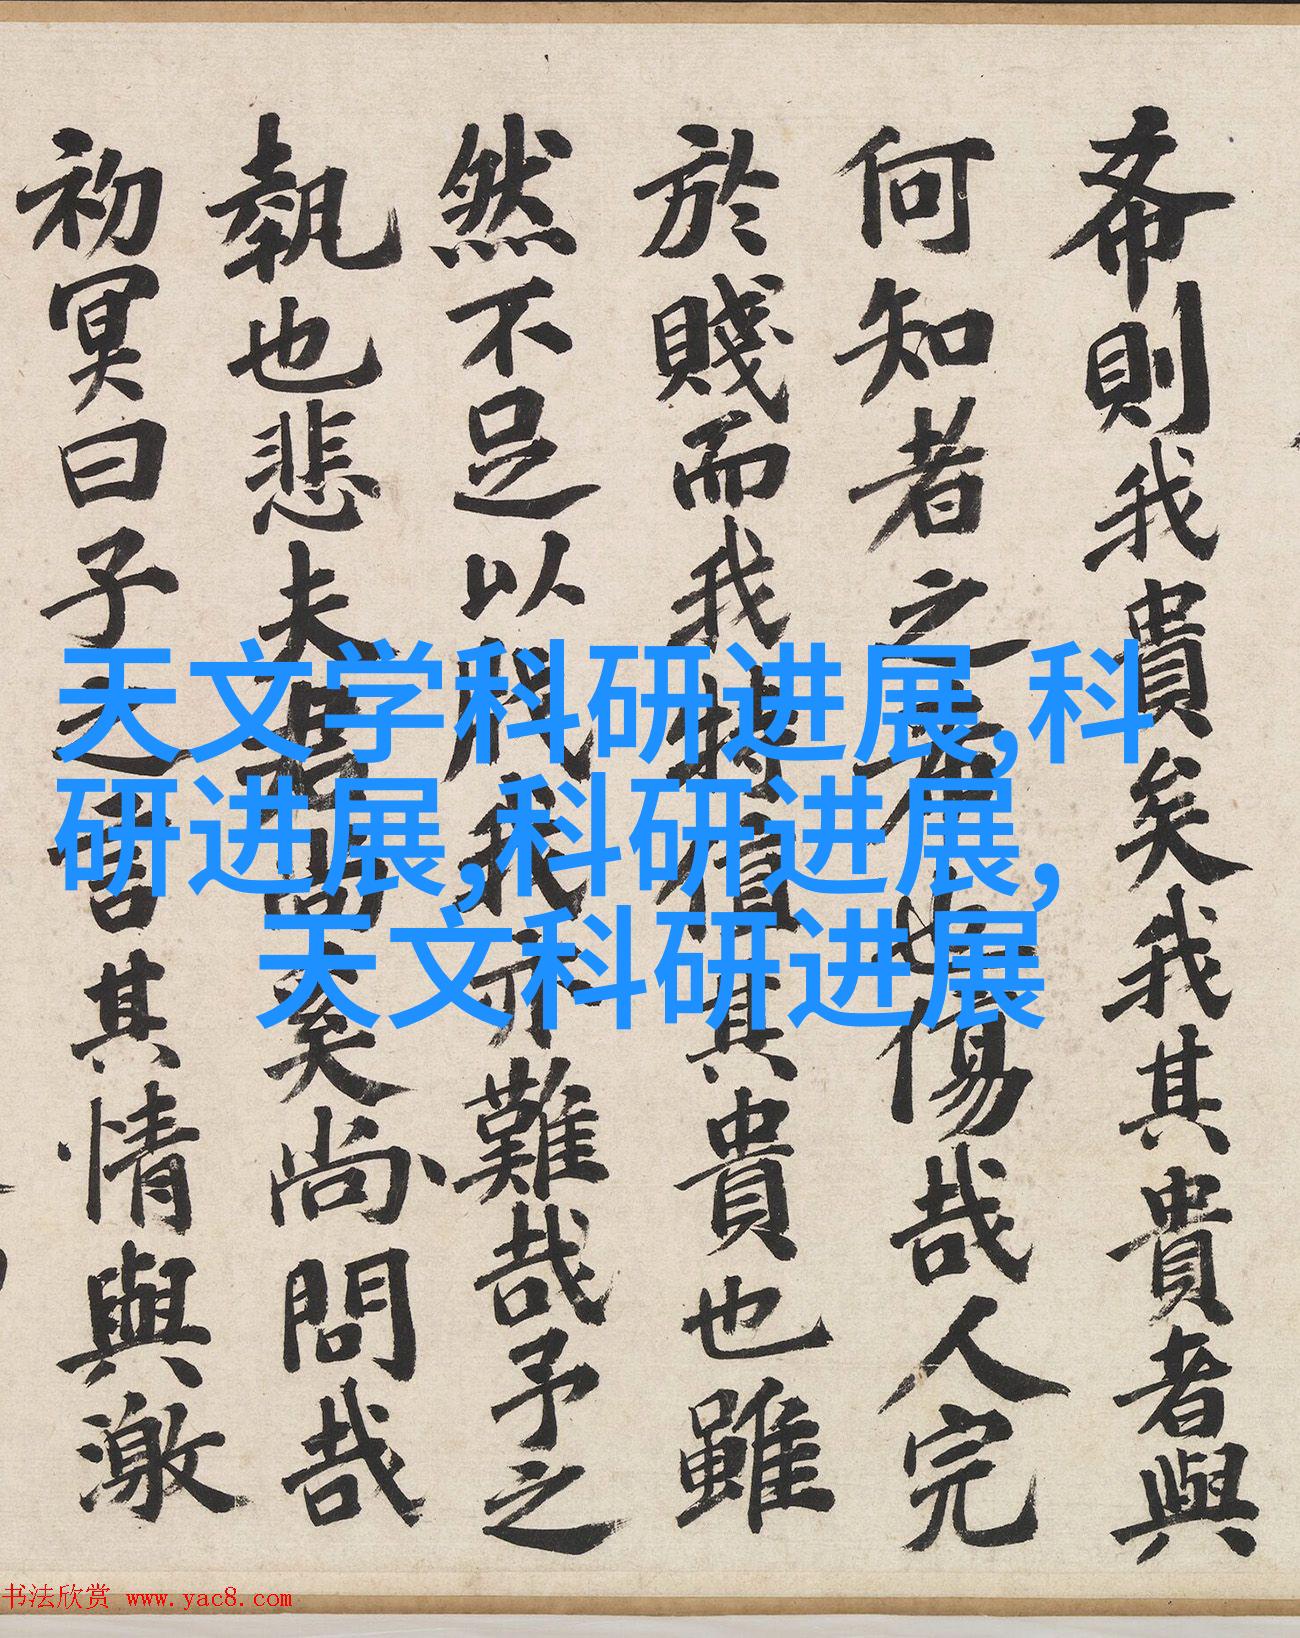 天文学科研进展,科
研进展,科研进展,
天文科研进展
希則我貴矣我其貴者與
何知者之也傷哉人完
於賤而我特值其貴也雖
然不足以我亦難哉予之
執也悲夫悲尚矣尚問哉
初冥曰子之言其情與激
书法欣赏 www.yac8.com